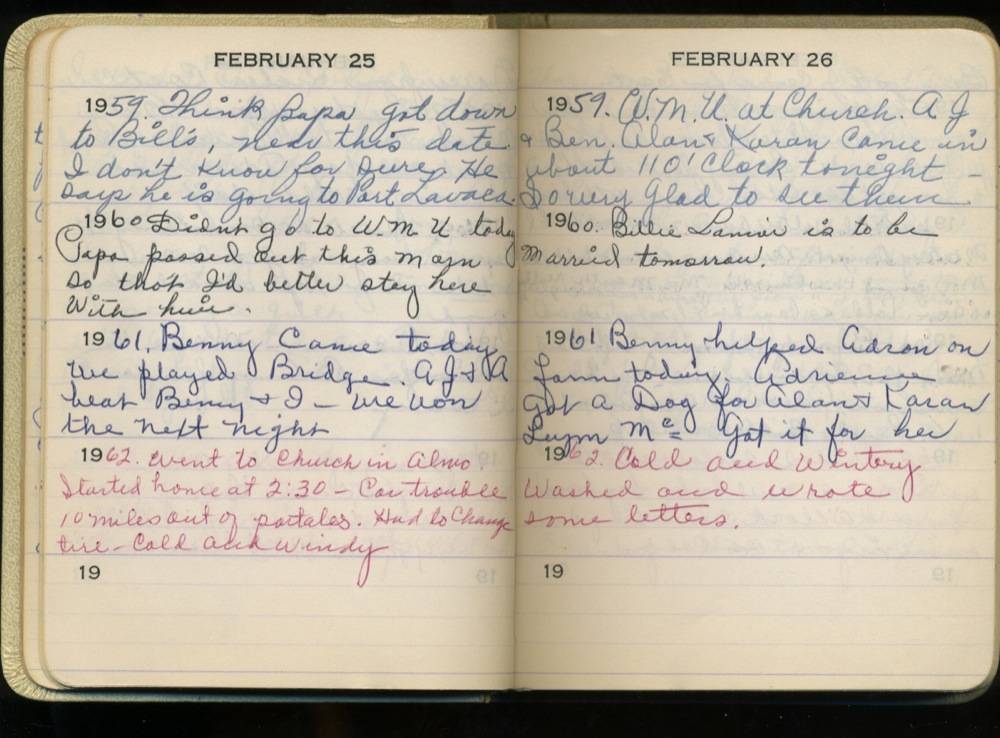 FEBRUARY 25
1959. Think papa got down
to Bill's, near this date.
I don't know for sure. He
says he is going to Port Lavaca.
1960 Didn't go to W.M.U today
Papa passed out this morn.
so thot I'd better stay here
with him.
1961. Benny Came today
we played Bridge. A.J. & A
beat Benny & I - we won
the next night
1962. Went to Church in Almo.
Started home at 2:30 - Car trouble
10 miles out of portales. Had to Change
tire - Cold and windy
19
FEBRUARY 26
1959. W.M.U. at Church. A J
& Ben. Alan & Karan Came in
about 11 O'Clock tonight -
So very Glad to see them
1960. Billie Lanier is to be
married tomorrow.
1961 Benny helped Adron on
farm today. Adrienne
Got a Dog for Alan & Karan
Mc Got it for her
1962. Cold and Wintery
Washed and wrote
some letters.
19